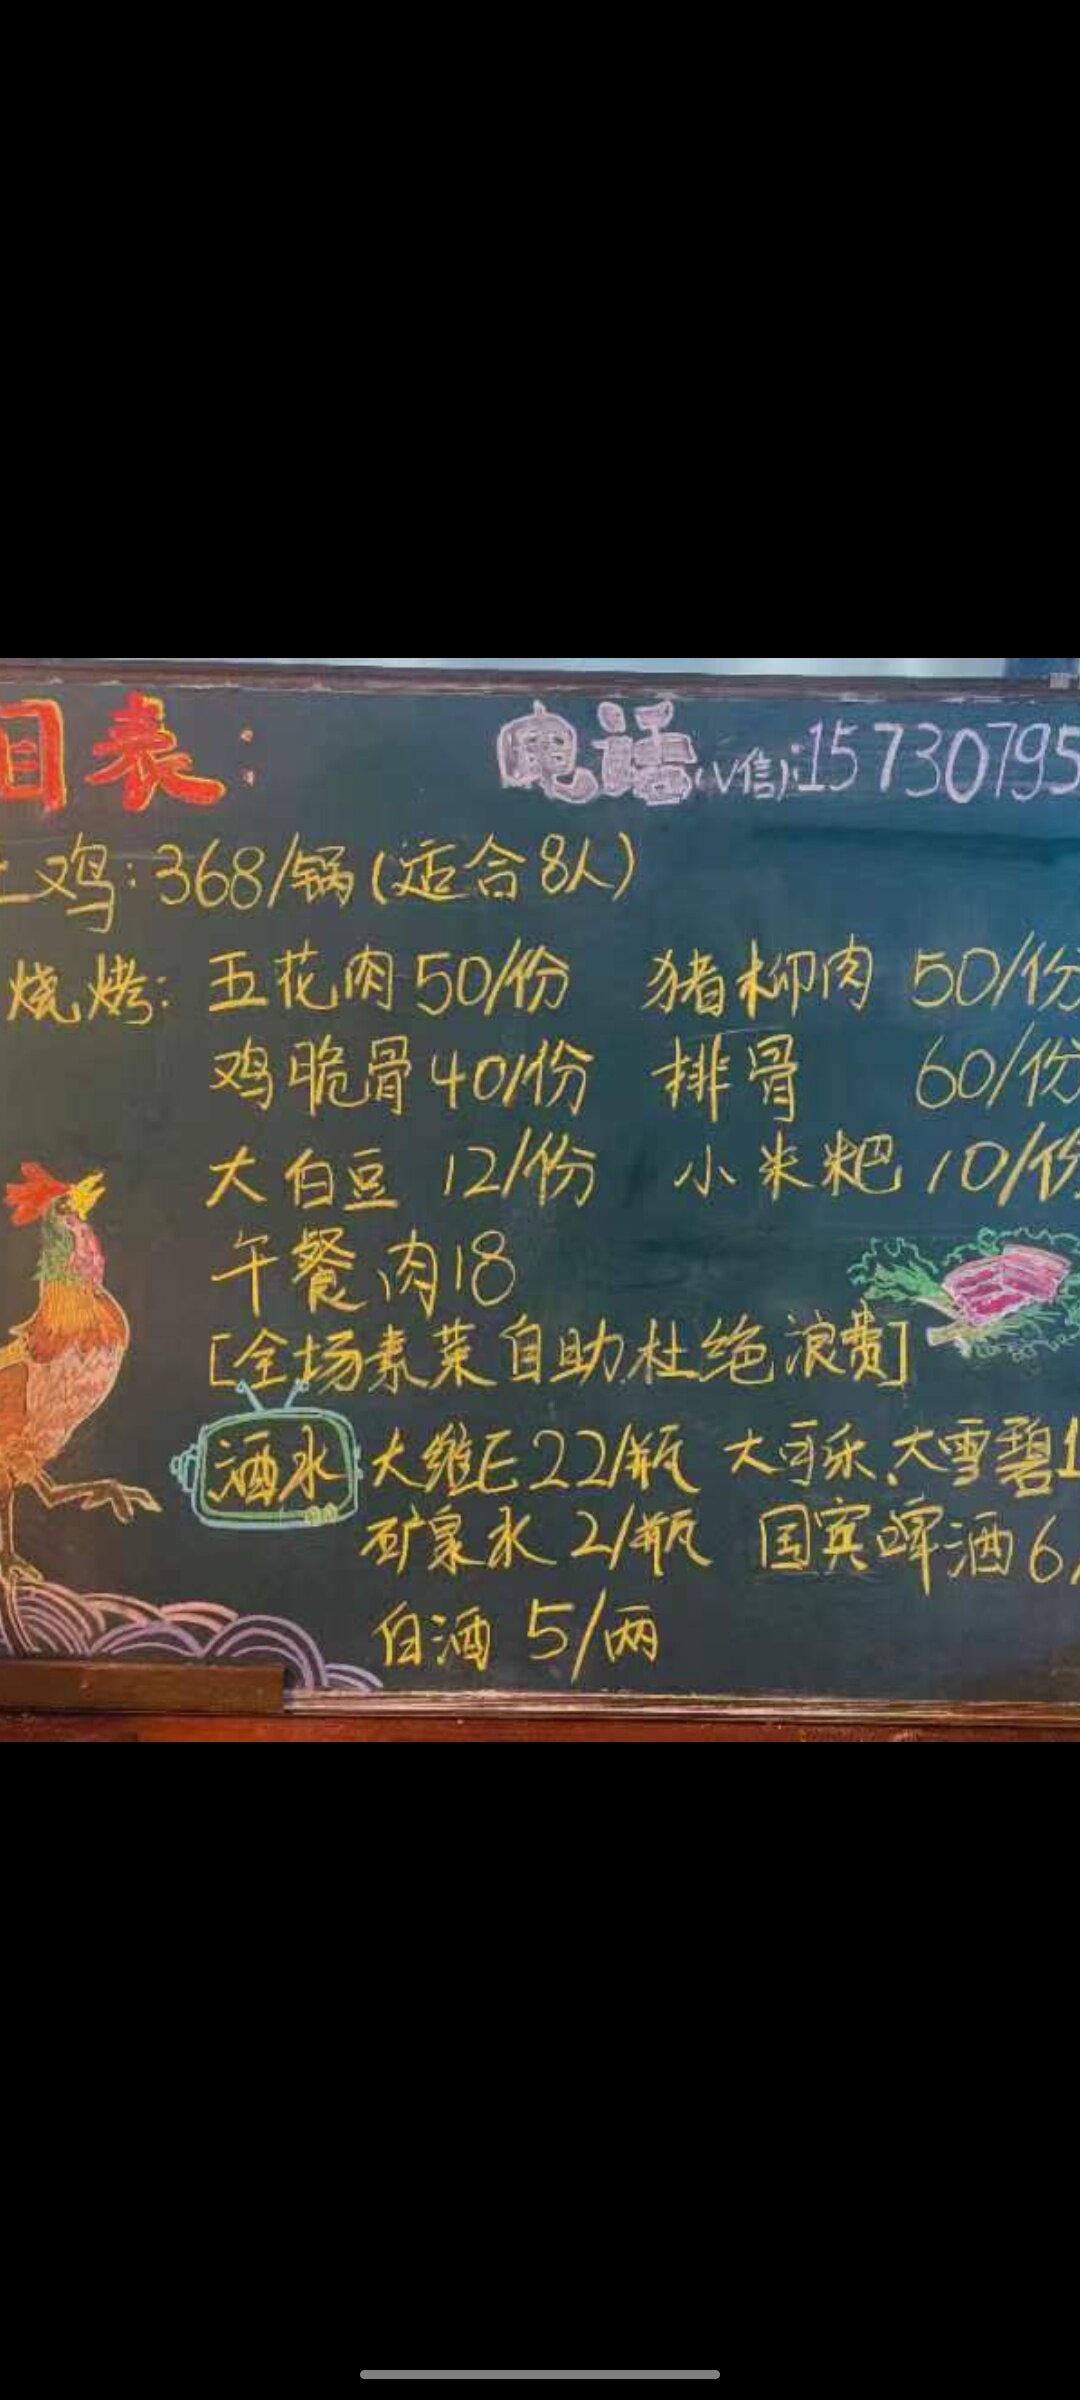 目表： 电话(V信):15730795
土鸡:368/锅(适合8人)
烧烤: 五花肉50/份 猪柳肉 50/份
鸡脆骨40/份 排骨 60/份
大白豆 12/份 小米粑 10/份
午餐肉18
[全场素菜自助杜绝浪费]
酒水 大维E22/瓶 大可乐、大雪碧1
矿泉水 2/瓶 国宾啤酒6/
白酒 5/两